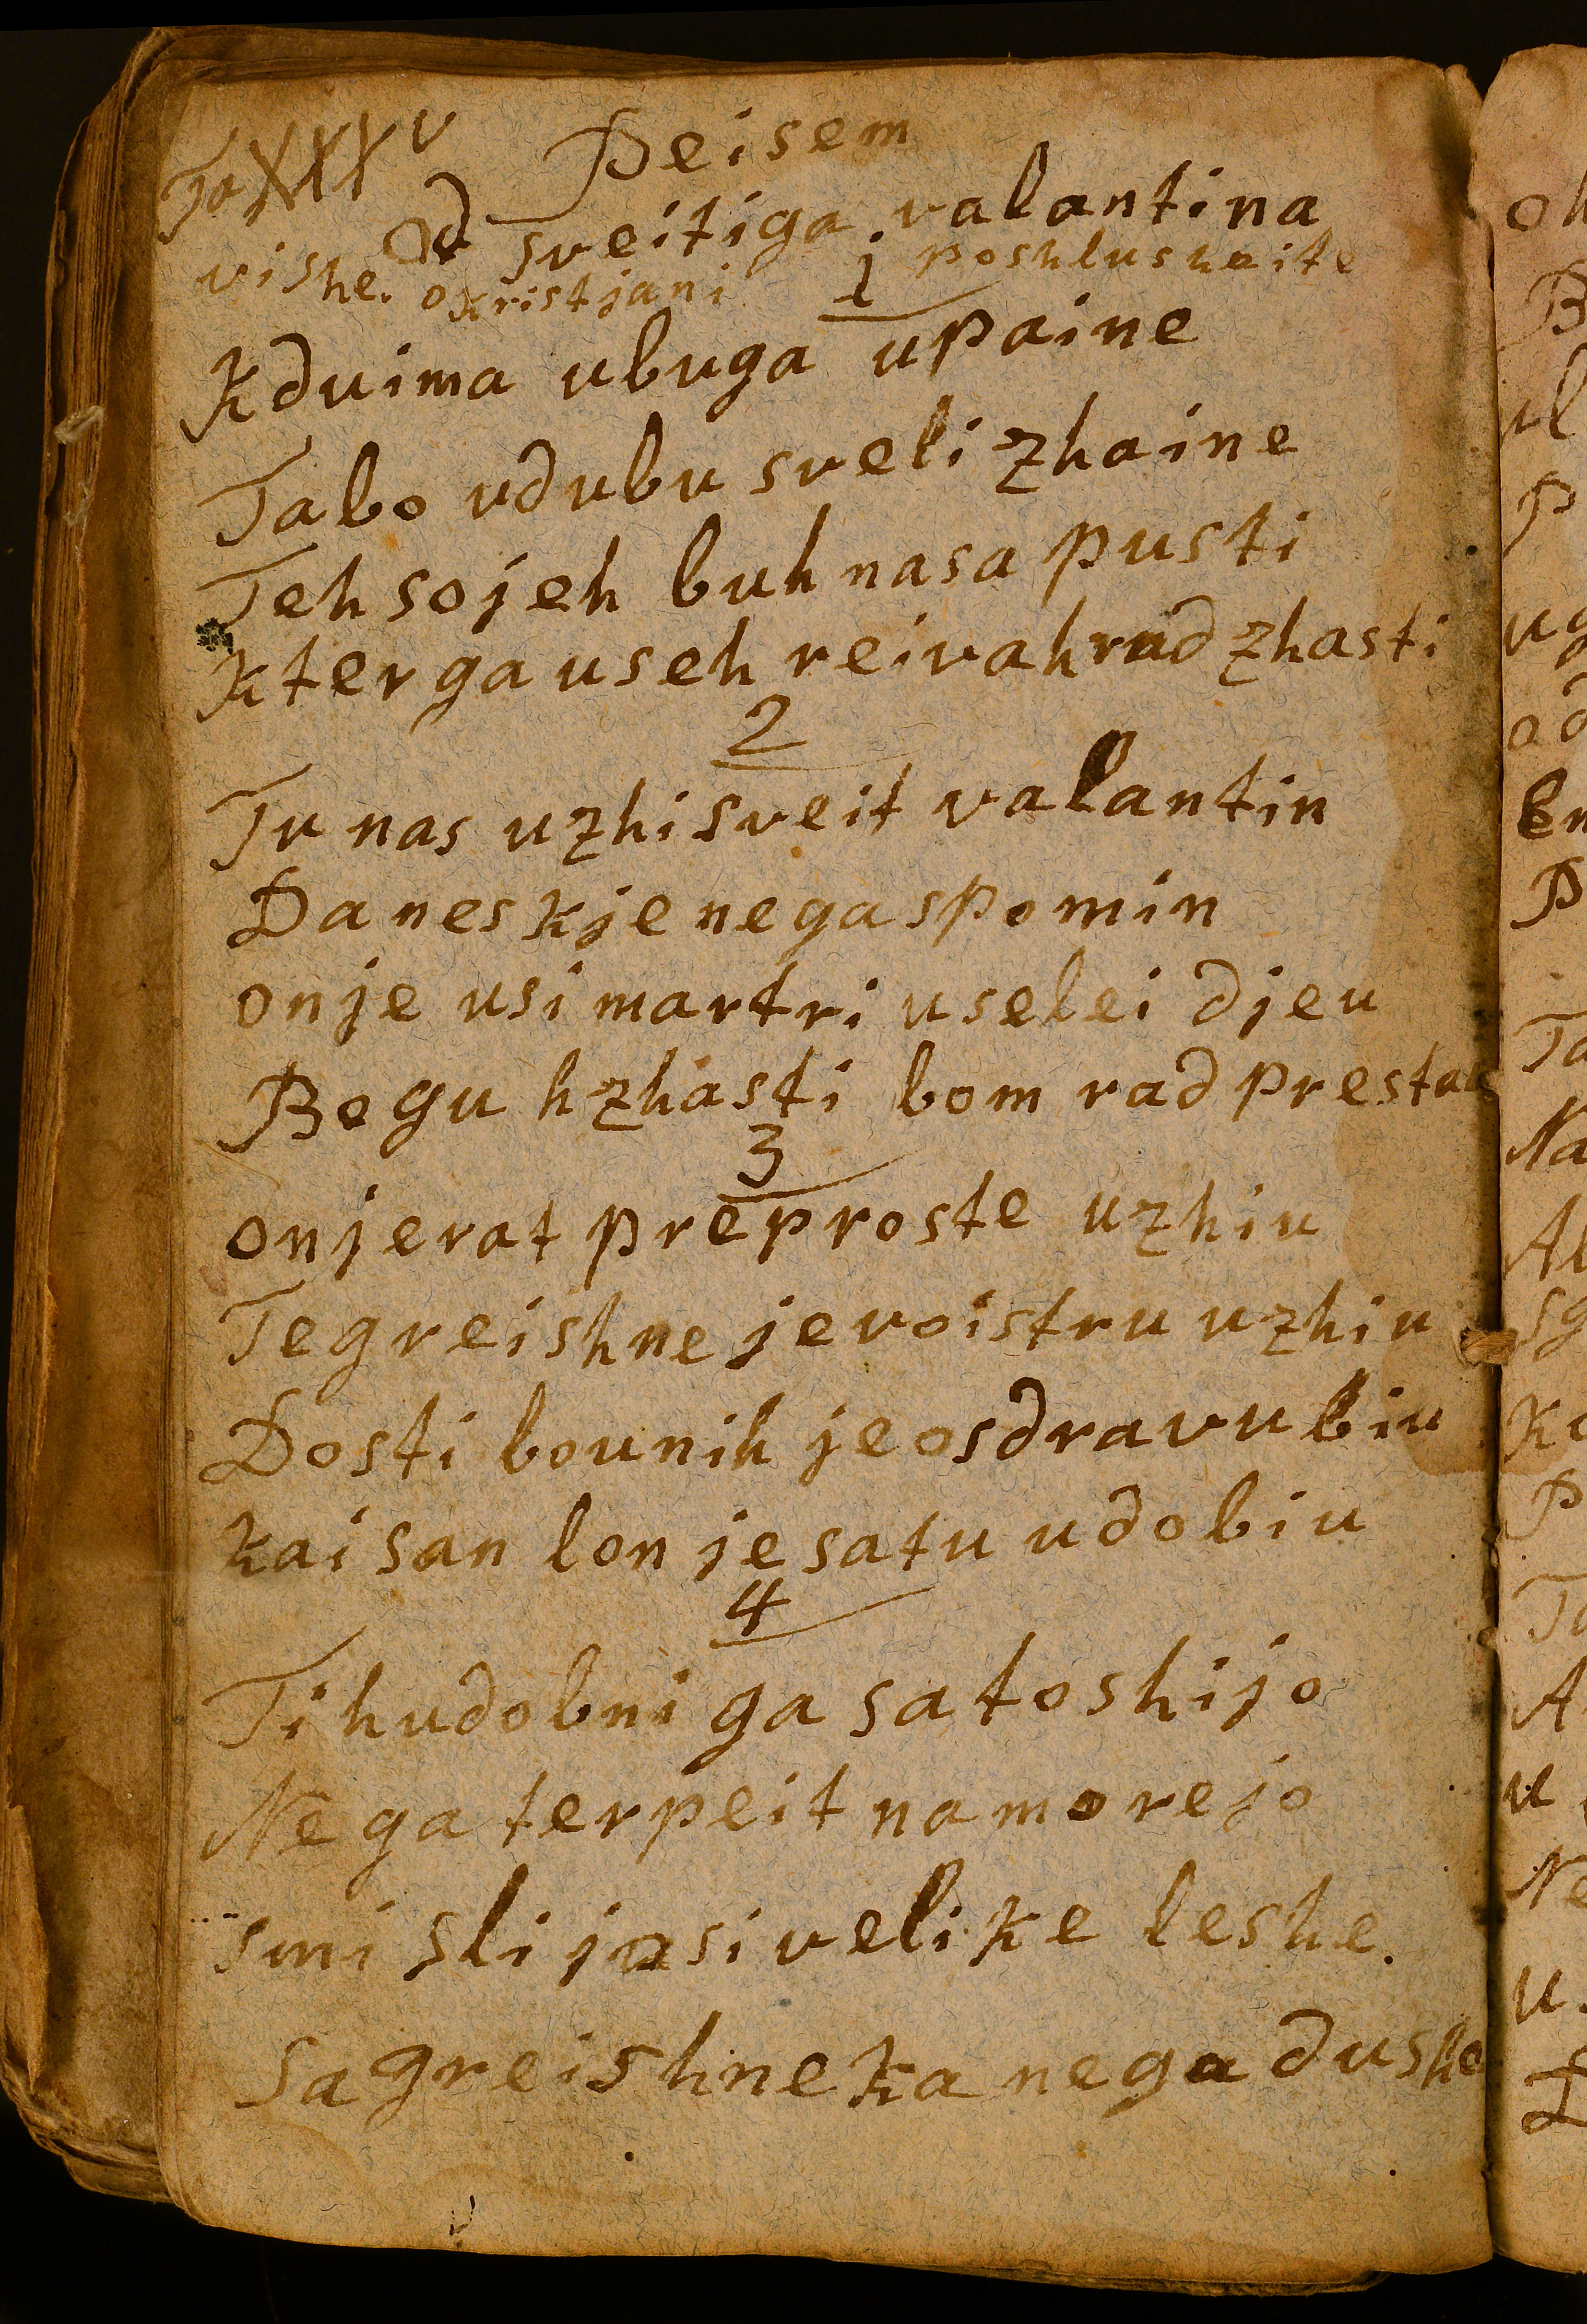 Peisem
Od sveitiga valantina
vishe. o kristjani 1 poshlushaite
Kduima ubuga upaine
Tabo udubu sveli zhaine
Teh sojeh buh nasa pusti
Kter ga useh reivah rad zhasti
2
Tu nas uzhi sveit valantin
Danes kje nega spomin
on je usi martri uselei djeu
Bogu hzhasti bom rad prestau
3
on je rat preproste uzhiu
Te greishne je voistru uzhiu
Dosti bounih je osdravu biu
kai san lon je satu udobiu
4
Ti hudobni ga satoshijo
Ne ga terpeit na morejo
smi sli jo si velike leshe.
Sa greishneka nega dushe